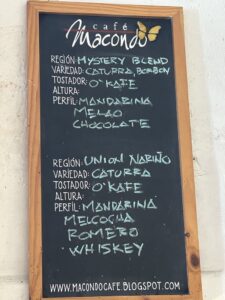 café
Macondo
REGIÓN: MYSTERY BLEND
VARIEDAD: CATURRA, BORBON
TOSTADOR: O'KAFE
ALTURA:
PERFIL: MANDARINA
MELAO
CHOCOLATE
REGIÓN: UNION NARIÑO
VARIEDAD: CATURRA
TOSTADOR: O'KAFE
ALTURA:
PERFIL: MANDARINA
MELCOCHA
ROMERO
WHISKEY
WWW.MACONDOCAFE.BLOGSPOT.COM